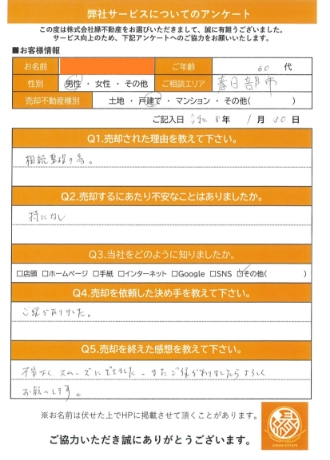 弊社サービスについてのアンケート
この度は株式会社縁不動産をお選びいただきまして、誠に有難うございました。
サービス向上のため、下記アンケートへのご協力をお願いいたします。
■お客様情報
お名前 ご年齢 60 代
性別 男性 ・ 女性 ・ その他 ご相談エリア 春日部市
売却不動産種別 土地 ・ 戸建て ・ マンション ・ その他( )
ご記入日 令和 8年 1月 30日
Q1.売却された理由を教えて下さい。
相続整理の為。
Q2.売却するにあたり不安なことはありましたか。
特になし
Q3.当社をどのように知りましたか。
□店頭 □ホームページ □手紙 □インターネット □Google □SNS ☑その他( )
Q4.売却を依頼した決め手を教えて下さい。
ご縁がありました。
Q5.売却を終えた感想を教えて下さい。
不安なく スムーズにできました。またご縁がありましたらよろしく
お願いします。
※お名前は伏せた上でHPに掲載させて頂くことがあります。
ご協力いただき誠にありがとうございます。
縁